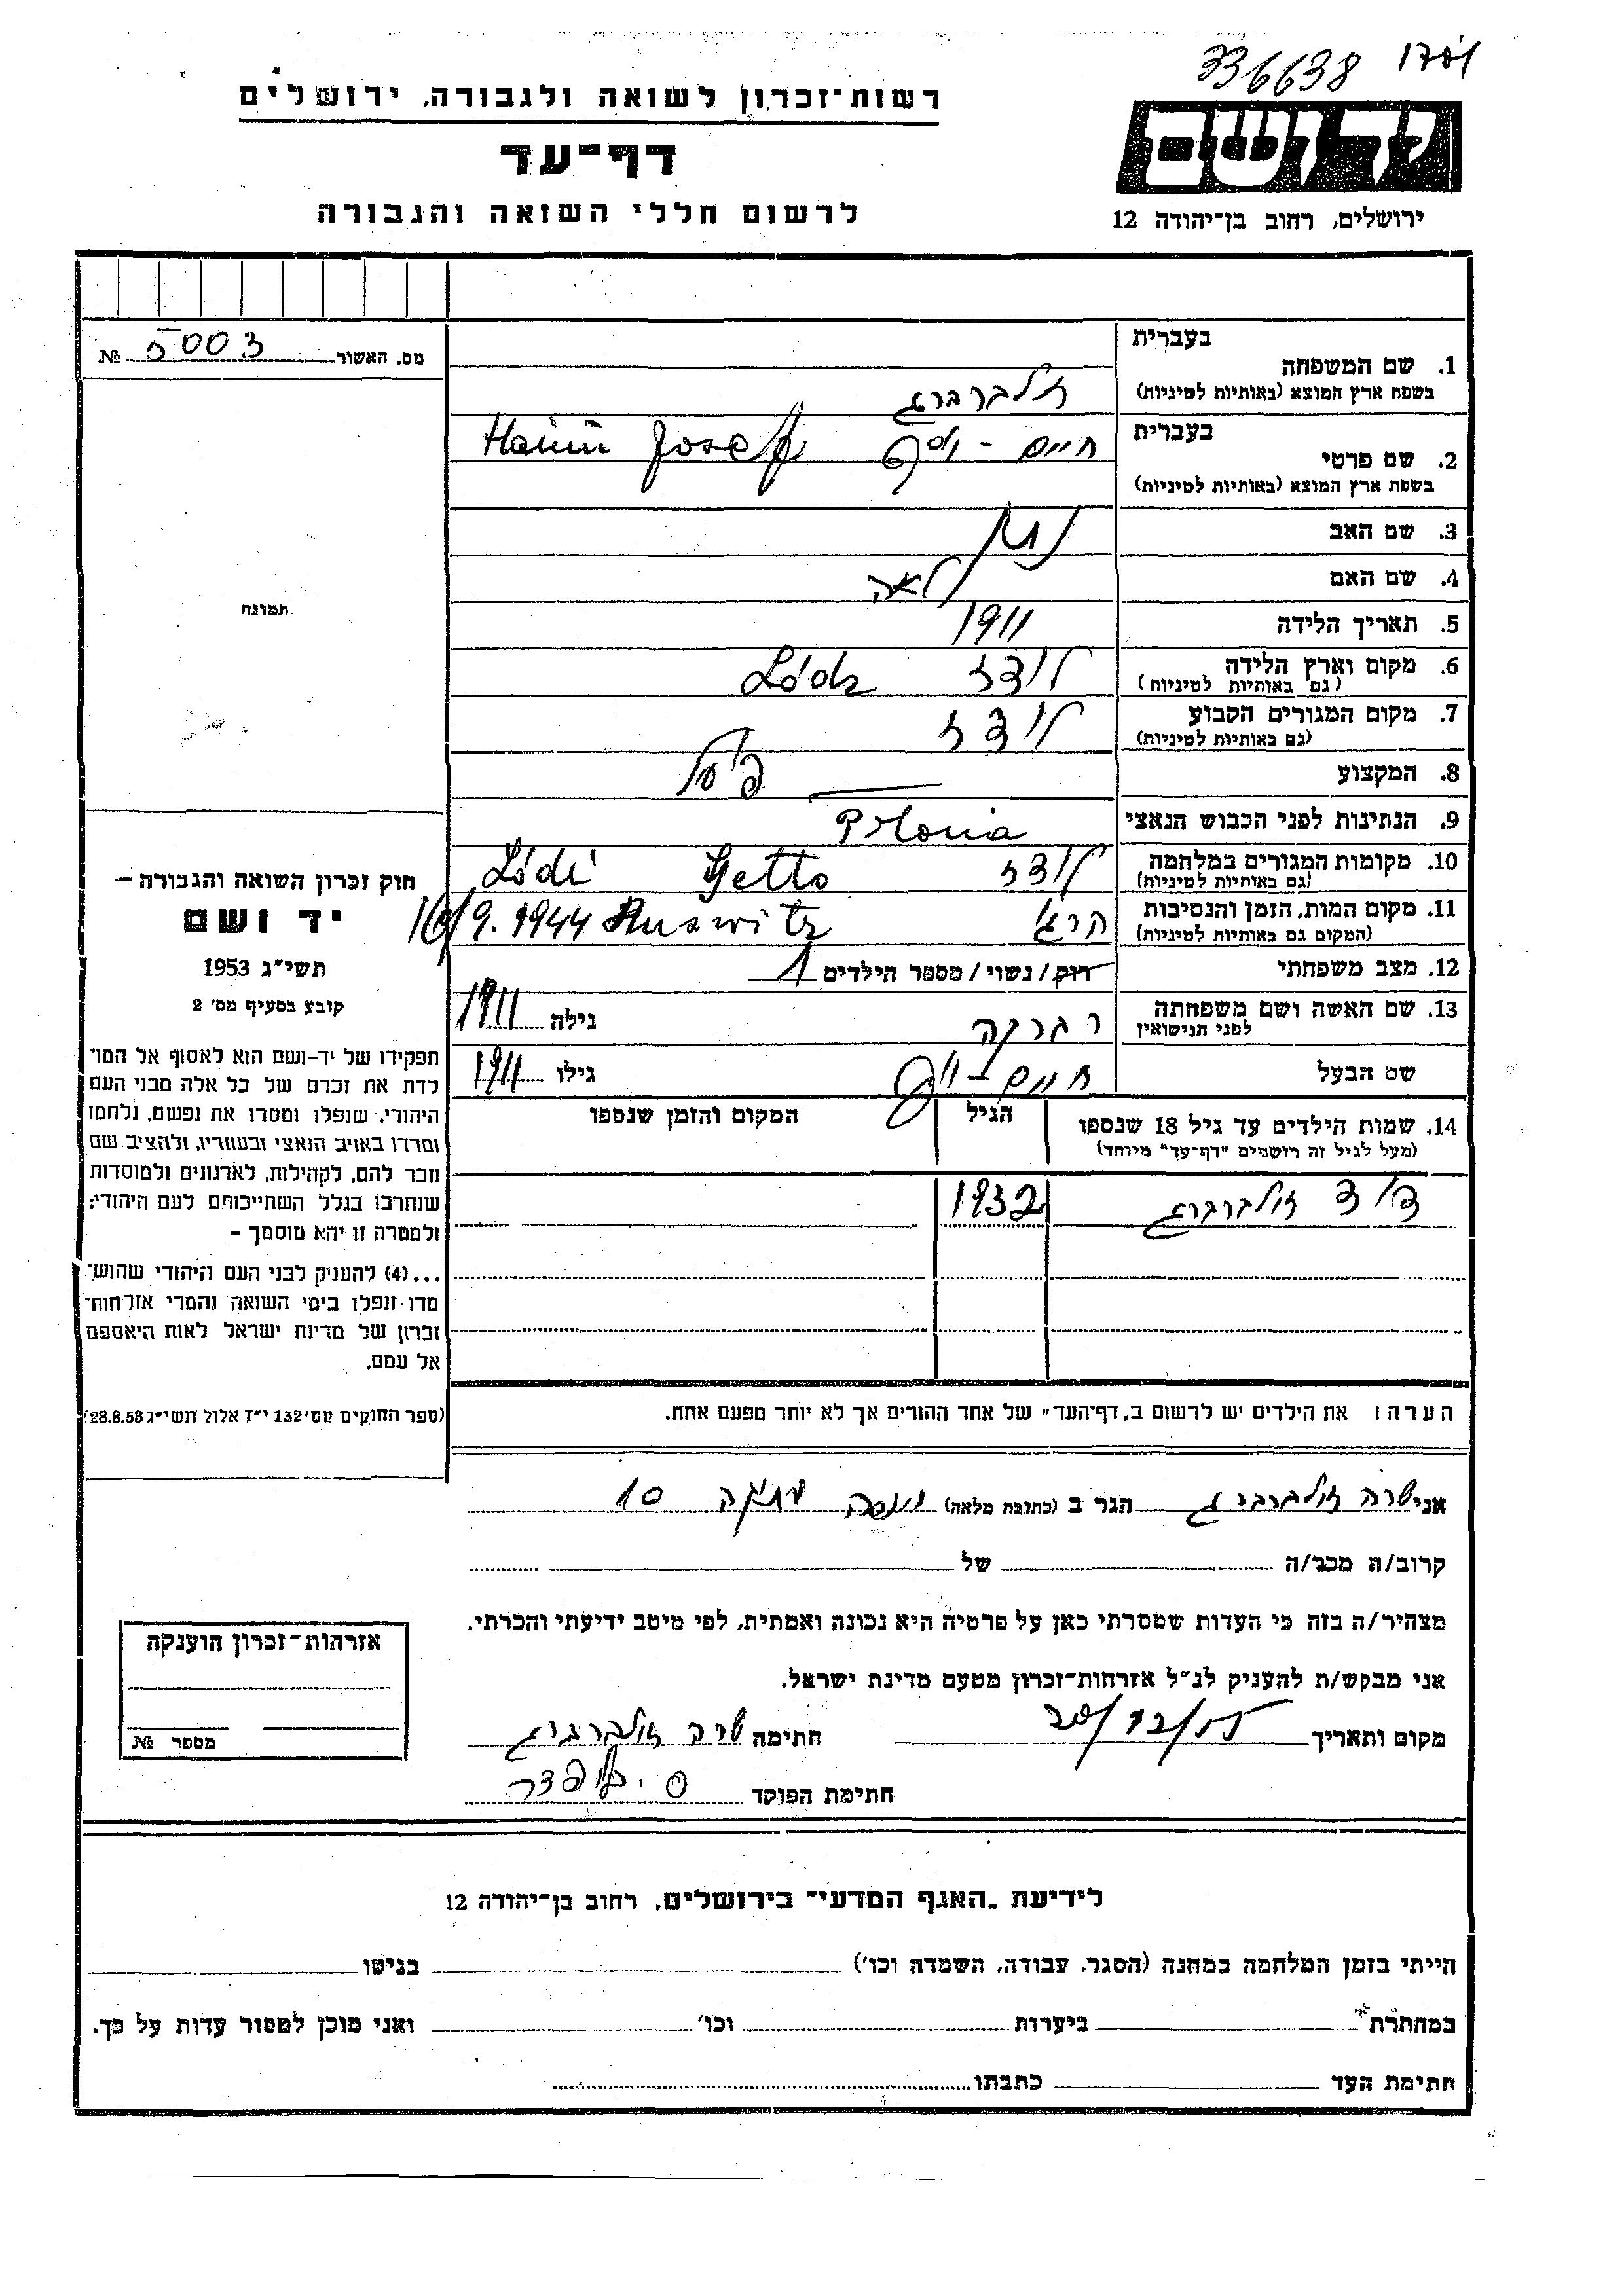 336638
רשות־זכרון לשואה ולגבורה, ירושלים
דף־עד
לרשום חללי השואה והגבורה
ידושם
ירושלים, רחוב בן־יהודה 12
מס. האשור 5003 №
בעברית
1. שם המשפחה
בשפת ארץ המוצא (באותיות לטיניות)
זילברברג
בעברית
2. שם פרטי
בשפת ארץ המוצא (באותיות לטיניות)
חיים - יוסף Haim Josef
3. שם האב נתן
4. שם האם לאה
5. תאריך הלידה 1911
6. מקום וארץ הלידה לודז Lódz
(גם באותיות לטיניות)
7. מקום המגורים הקבוע לודז
(גם באותיות לטיניות)
8. המקצוע
9. הנתינות לפני הכבוש הנאצי Polonia
10. מקומות המגורים במלחמה לודז Getto Lódź
(גם באותיות לטיניות)
11. מקום המות, הזמן והנסיבות הרג Auswitz 16/9.1944
(המקום גם באותיות לטיניות)
12. מצב משפחתי רוק/נשוי/מספר הילדים 1
13. שם האשה ושם משפחתה רבקה גילה 1911
לפני הנישואין
שם הבעל חיים - יוסף גילו 1911
14. שמות הילדים עד גיל 18 שנספו הגיל המקום והזמן שנספו
(מעל לגיל זה רושמים "דף-עד" מיוחד)
דוד זילברברג 1932
תמונה
חוק זכרון השואה והגבורה –
יד ושם
תשי"ג 1953
קובע בסעיף מס' 2
תפקידו של יד-ושם הוא לאסוף אל המו־
לדת את זכרם של כל אלה מבני העם
היהודי, שנפלו ומסרו את נפשם, נלחמו
ומרדו באויב הנאצי ובעוזריו, ולהציב שם
וזכר להם, לקהילות, לארגונים ולמוסדות
שנחרבו בגלל השתייכותם לעם היהודי;
ולמטרה זו יהא מוסמך –
...(4) להעניק לבני העם היהודי שהוש־
מדו ונפלו בימי השואה והמרי אזרחות־
זכרון של מדינת ישראל לאות היאספם
אל עמם.
(ספר החוקים מס' 132 י"ז אלול תשי"ג 28.8.53)
הערה: את הילדים יש לרשום ב„דף־העד" של אחד ההורים אך לא יותר מפעם אחת.
אני שרה זילברברג הגר ב (כתובת מלאה) 10
קרוב/ת מכב/ה של
מצהיר/ה בזה כי העדות שמסרתי כאן על פרטיה היא נכונה ואמתית, לפי מיטב ידיעתי והכרתי.
אני מבקש/ת להעניק לנ"ל אזרחות־זכרון מטעם מדינת ישראל.
מקום ותאריך 20/12/55 חתימה שרה זילברברג
חתימת הפוקד
אזרחות־זכרון הוענקה
מספר №
לידיעת „האגף המדעי" בירושלים, רחוב בן־יהודה 12
הייתי בזמן המלחמה במחנה (הסגר, עבודה, השמדה וכו') בגיטו
במחתרת ביערות וכו' ואני מוכן למסור עדות על כך.
חתימת העד כתבתו